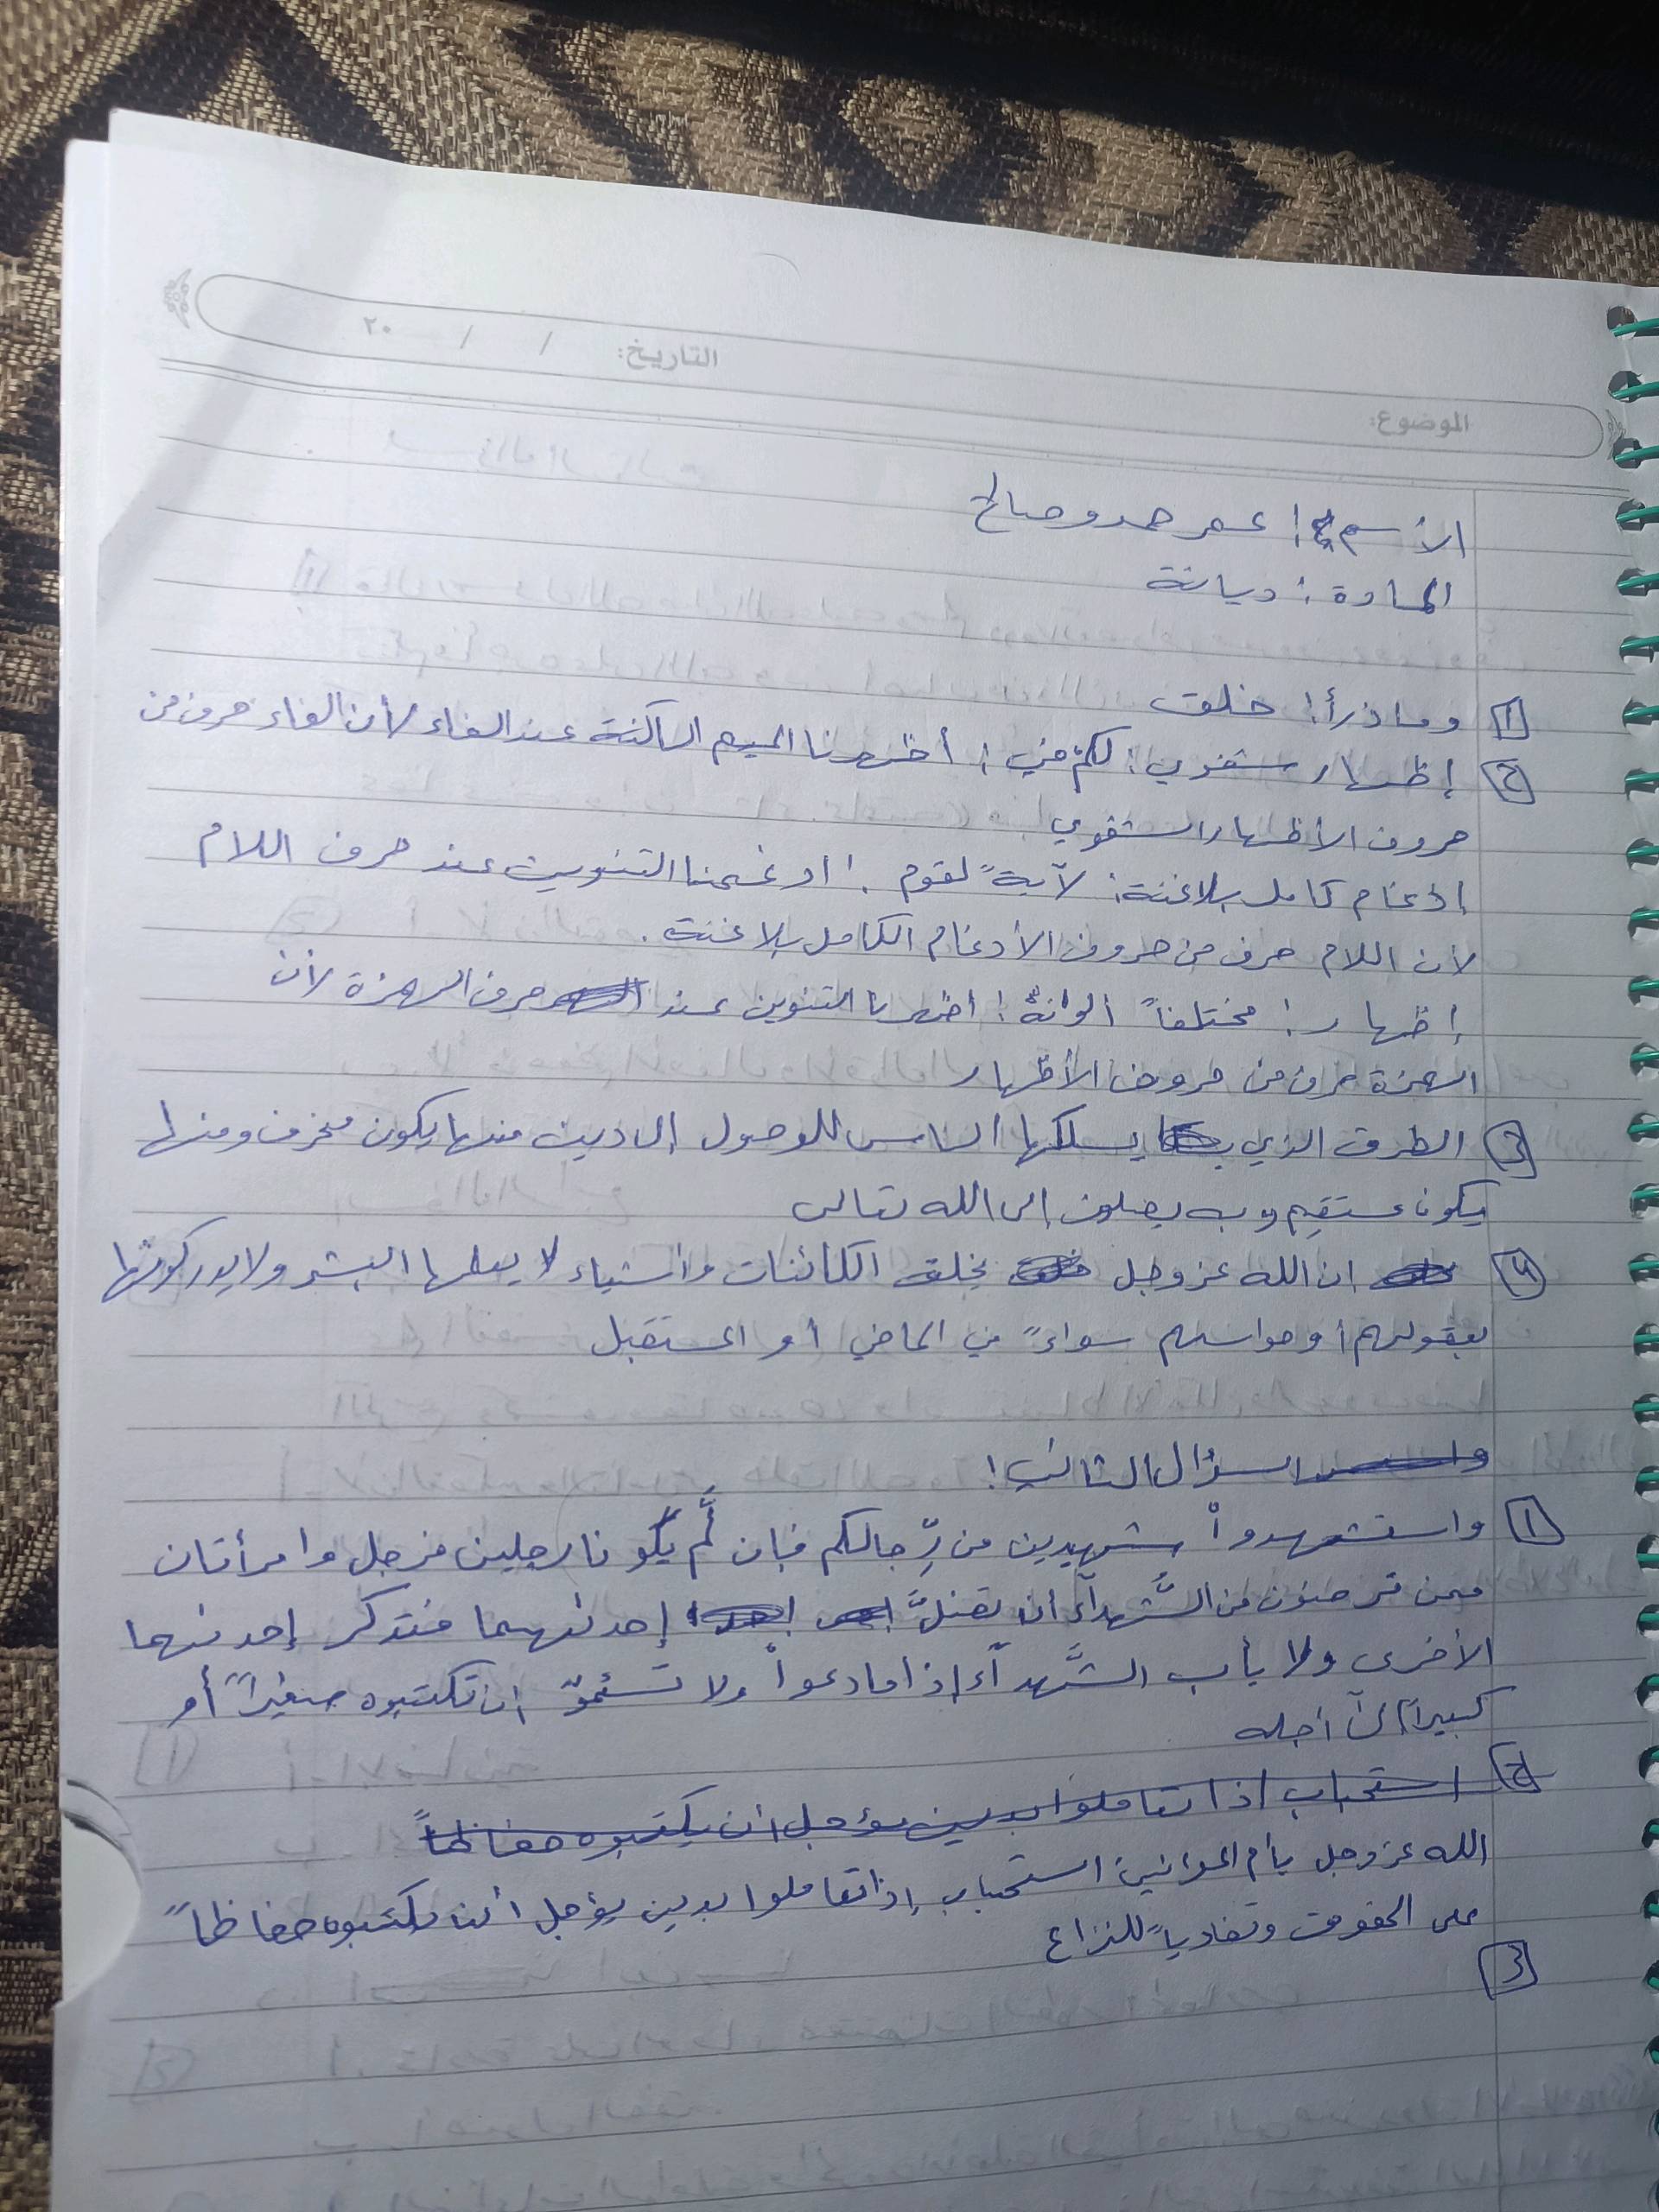 التاريخ: / / ٢٠
الموضوع:
الأسم: عمر حمدو صالح
المادة: ديانة
1 وما ذرأ: خلق
2 إظهار شفوي: لكم في: أظهرنا الميم الساكنة عند الفاء لأن الفاء حرف من
حروف الأظهار الشفوي
إدغام كامل بلا غنة: لآيةً لقوم: ادغمنا التنوين عند حرف اللام
لأن اللام حرف من حروف الأدغام الكامل بلا غنة.
إظهار: مختلفاً الوانهُ: اظهرنا التنوين عند حرف الهمزة لأن
الهمزة حرف من حروف الأظهار
3 الطرق الذي يسلكها الناس للوصول إلى منها يكون منحرف ومنها
يكون مستقيم وبه يصلون إلى الله تعالى
4 ان الله عزوجل يخلق الكائنات وأشياء لا يعلمها البشر ولا يدركونها
بعقولهم أو حواسهم سواءً في الماضي أو المستقبل
السؤال الثاني:
1 واستشهدواْ شهيدين من رِّجالكم فإن لَّم يكونا رجلين فرجل وامرأتان
ممن ترضون من الشُّهدآء ان تضلَّ إحدىهما فتذكر إحدىهما
الأخرى ولا يأب الشُّهدآء إذا ما دعواْ ولا تسئموْ ان تكتبوه صغيراً أو
كبيراً إلىٓ أجله
2 استحباب اذا تعاملوا بدين مؤجل أن يكتبوه حفاظاً
الله عزوجل استحباب إذا تعاملوا بدين يؤجل أن يكتبوه حفاظاً
على الحقوق وتفادياً للنزاع
3